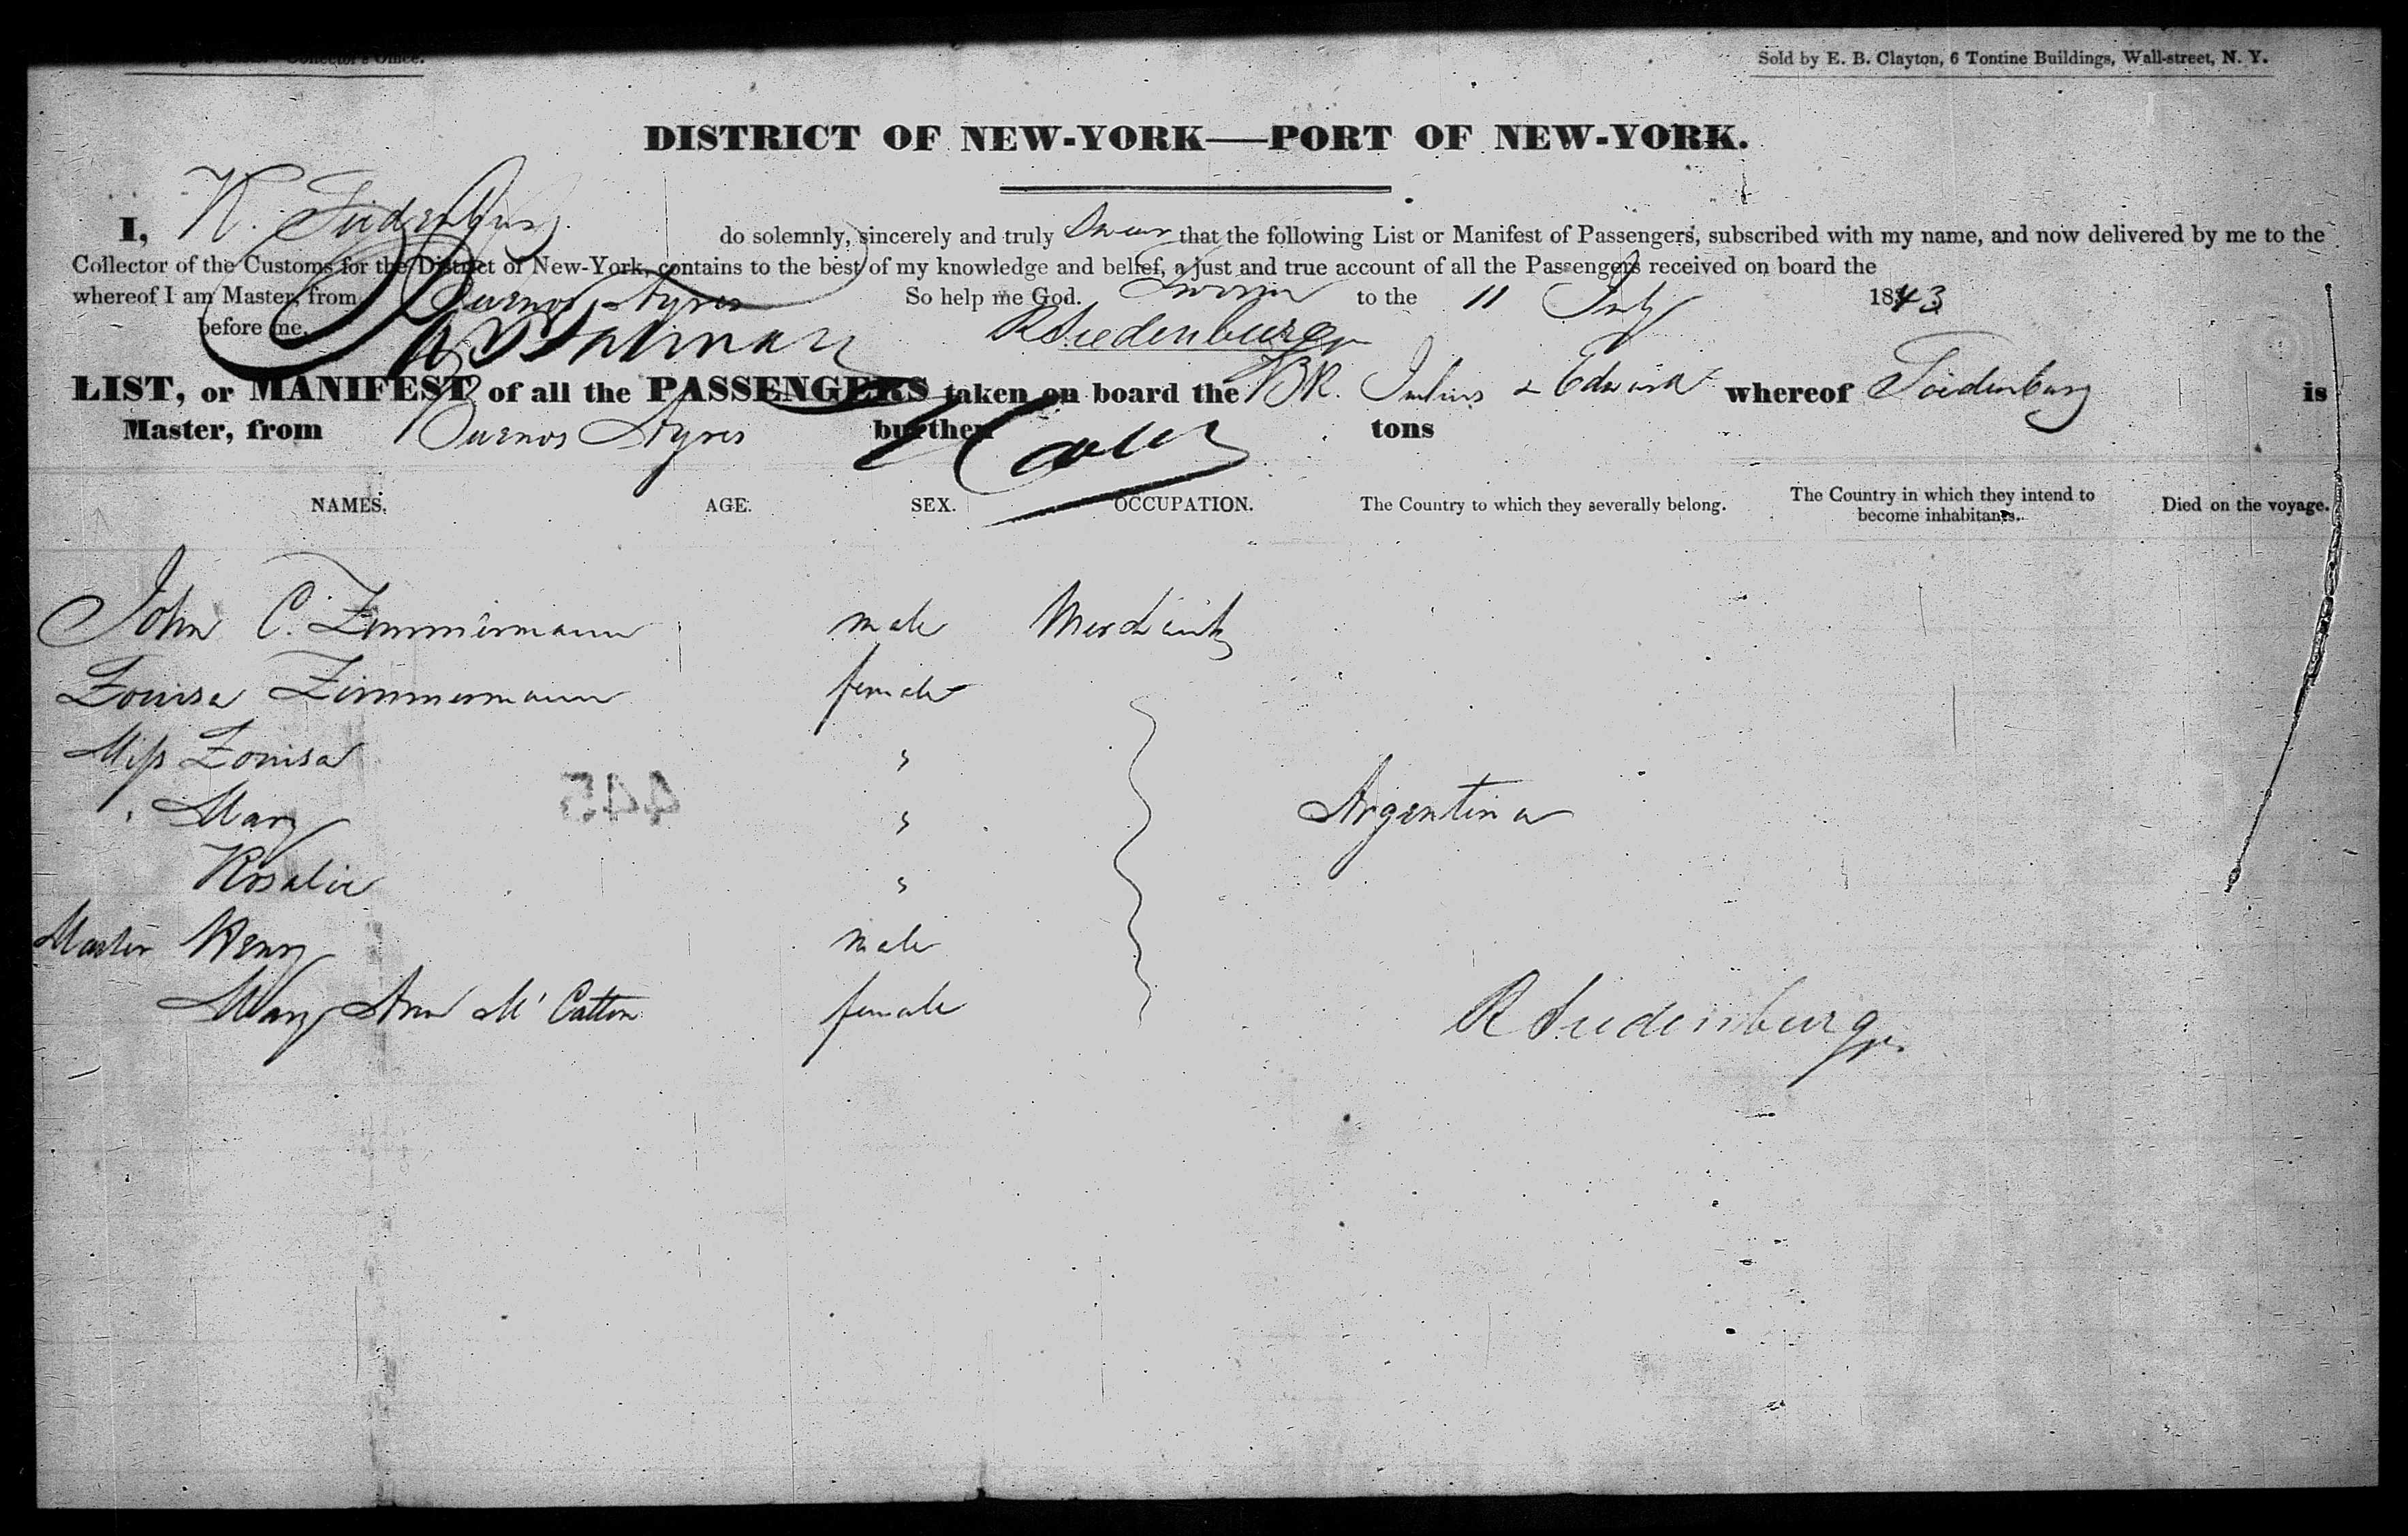 Collector's Office.
Sold by E. B. Clayton, 6 Tontine Buildings, Wall-street, N. Y.
DISTRICT OF NEW-YORK—PORT OF NEW-YORK.
I, R. Siedenburg do solemnly, sincerely and truly Swear that the following List or Manifest of Passengers, subscribed with my name, and now delivered by me to the
Collector of the Customs for the District of New-York, contains to the best of my knowledge and belief, a just and true account of all the Passengers received on board the
whereof I am Master, from Buenos Ayres So help me God. Sworn to the 11 July 1843
before me, R Siedenburg jr
LIST, or MANIFEST of all the PASSENGERS taken on board the BR. Julius & Edward whereof Siedenburg is
Master, from Buenos Ayres burthen tons
NAMES. AGE. SEX. OCCUPATION. The Country to which they severally belong. The Country in which they intend to become inhabitants. Died on the voyage.
John C. Zimmermann male Merchant
Louisa Zimmermann female
Miss Louisa "
" Mary " Argentina
445
Rosalie "
Master Henry male
Mary Ann Mc Catton female
R Siedenburg jr.